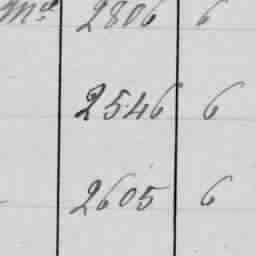 Md 2806 6
2546 6
2605 6